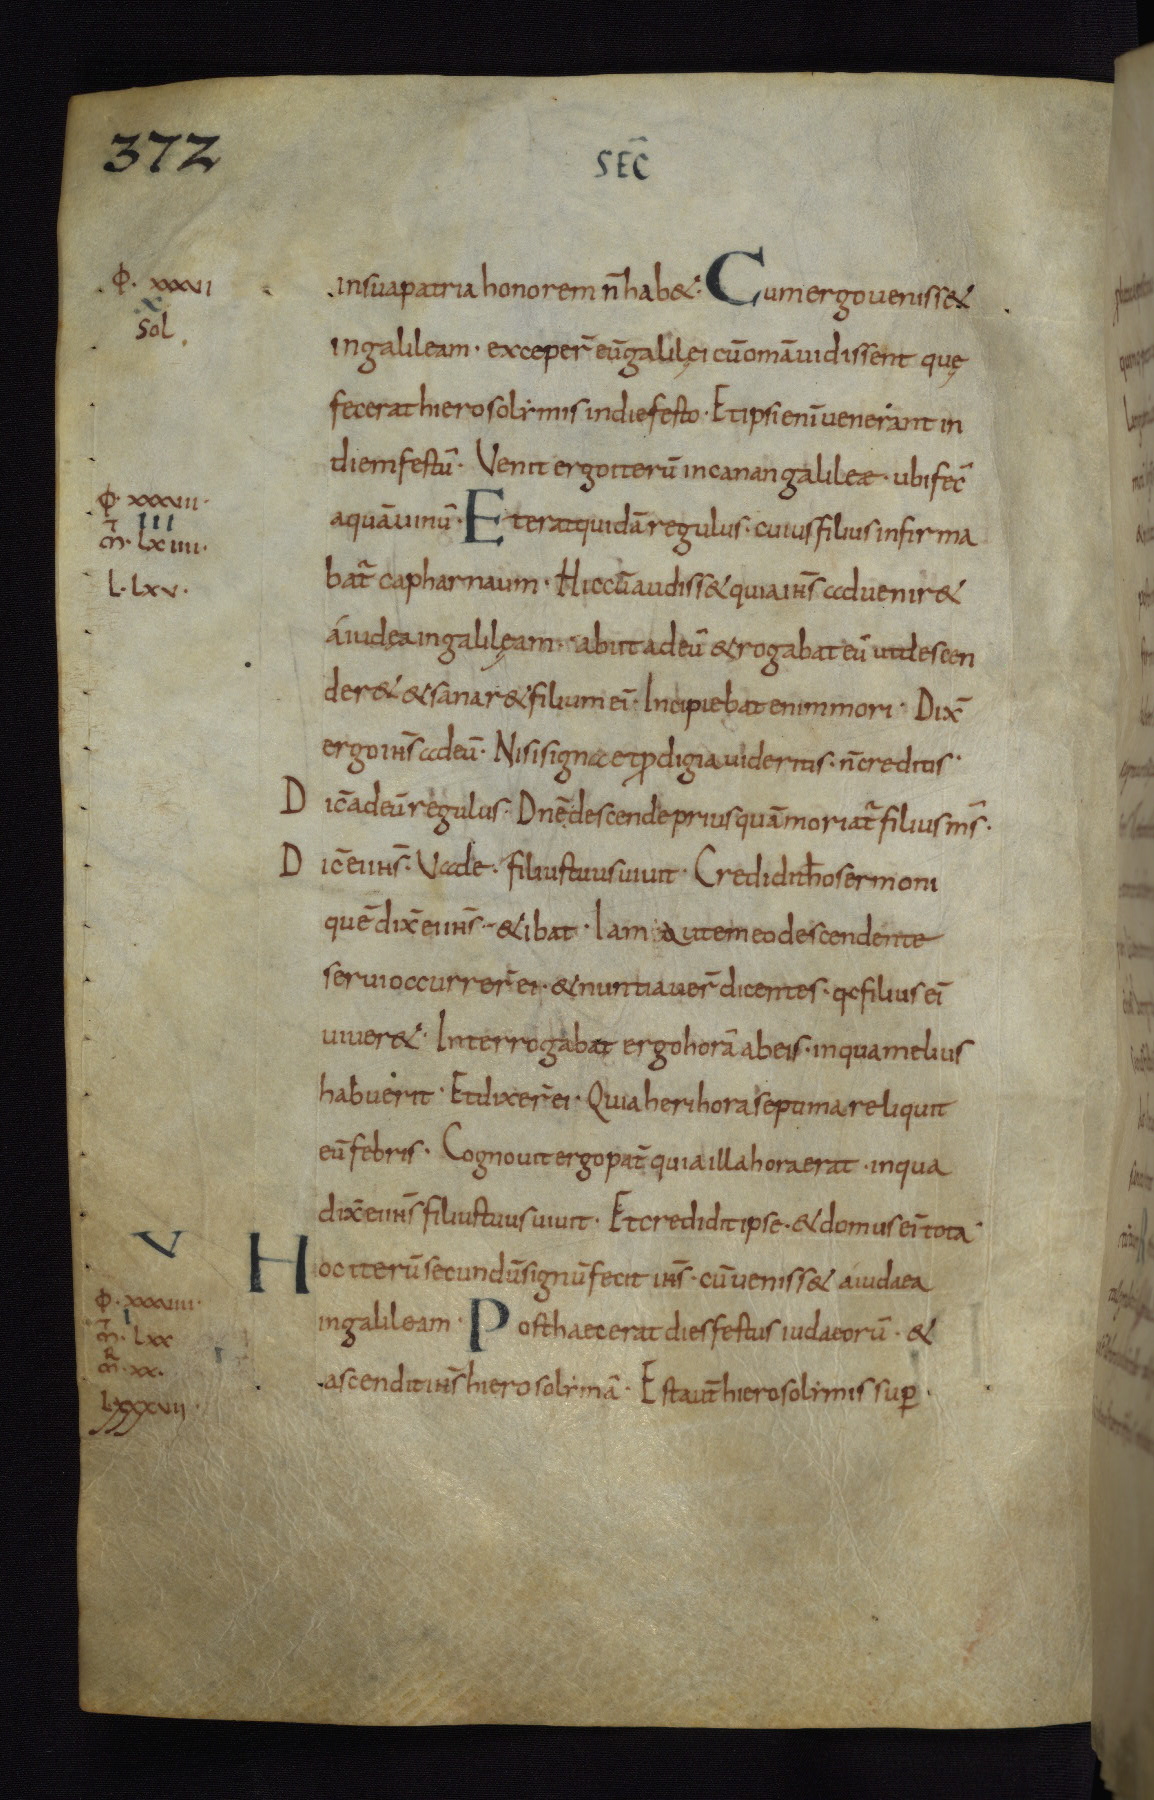 372
SEC̄
Φ. xxxvi
X
Sol.
insua patria honorem n̄ hab&. Cum ergo ueniss&
ingalileam. exceper̄ eū galilęi cū omā uidissent quę
fecerat hierosolimis indie festo. Et ipsi eni̅ uenerant in
diem festū. Venit ergo iterū in canan galileæ. ubi fec̄
Φ. xxxvii.
III
m̄. Lxiiii.
L. Lxv.
aquā uinū. Et erat quidā regulus. cuius filius infirma
bat̄ capharnaum. Hic cū audiss& quia ihs̄ aduenir&
á iudęa in galilęam. abiit ad eū & rogabat eū ut descen
der& & sanar& filium ei̅. Incipiebat enim mori. Dix̄
ergo ihs̄ ad eū. Nisi signa et prodigia uideritis. n̄ creditis.
Dic̄ ad eū regulus. Dnē descende priusquā moriat̄ filius ms̄.
Dic̄ ei ihs̄. Uade. filius tuus uiuit. Credidit ho sermoni
quē dix̄ ei ihs̄. & ibat. Iam autem eo descendente
serui occurrer̄ ei. & nuntiauer̄ dicentes. qc filius ei̅
uiuer&. Interrogabat ergo horā ab eis. in qua melius
habuerit. Et dixer̄ ei. Quia heri hora septima reliquit
eū febris. Cognouit ergo pat̄ quia illa hora erat. in qua
dix̄ ei ihs̄ filius tuus uiuit. Et credidit ipse. & domus ei̅ tota
V
Hoc iterū secundū signū fecit ihs̄. cū ueniss& á iudaea
Φ. xxxviii.
I
m̄. Lxx
R
m̄. xx.
Lxxxvii.
in galileam. Post haec erat dies festus iudaeorū. &
ascendit ihs̄ hierosolimā. Est aut̄ hierosolimis sup̱.